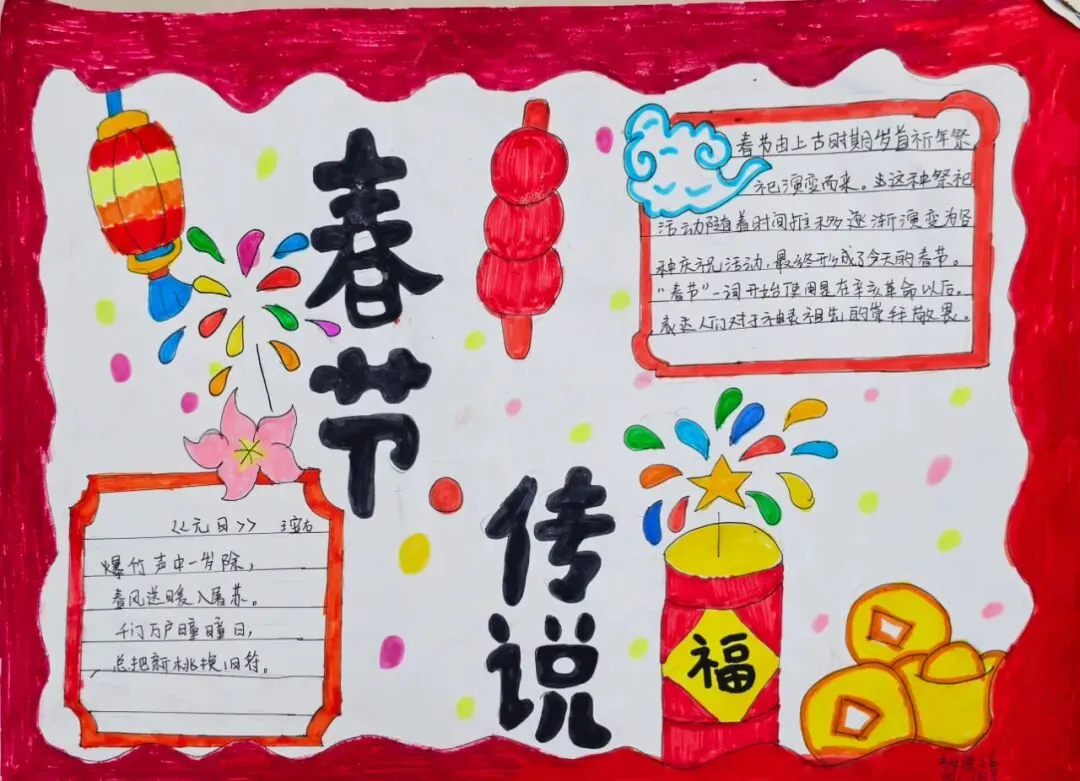 春节
传说
春节由上古时期岁首祈年祭
祀演变而来。当这种祭祀
活动随着时间推移逐渐演变为各
种庆祝活动,最终形成了今天的春节。
"春节"一词开始使用是在辛亥革命以后。
表达人们对于神灵祖先的崇拜敬畏。
<<元日>> 王安石
爆竹声中一岁除,
春风送暖入屠苏。
千门万户瞳瞳日,
总把新桃换旧符。
福